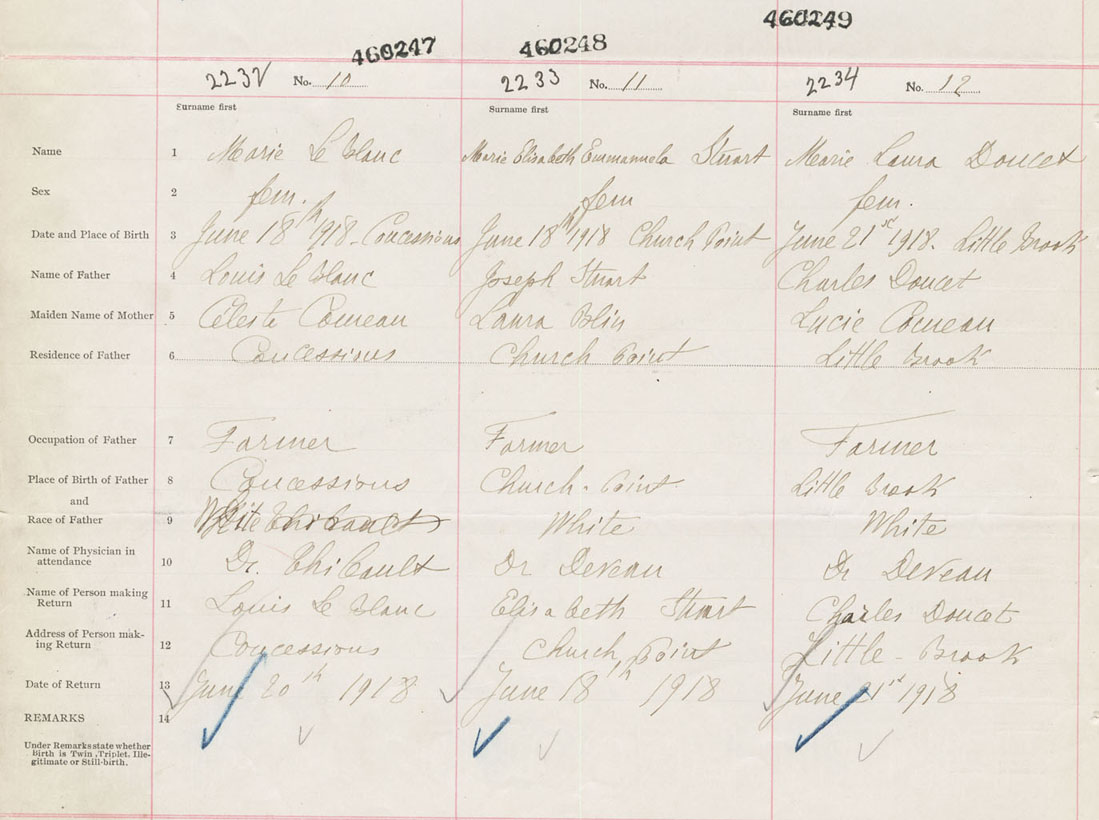 460247 460248 460249
2232 No. 10 2233 No. 11 2234 No. 12
Surname first Surname first Surname first
Name 1 Marie Le Blanc Marie Elisabeth Emmanuela Stuart Marie Laura Doucet
Sex 2 fem. fem fem.
Date and Place of Birth 3 June 18th 1918 - Concessions June 18th 1918 Church Point June 21st 1918. Little Brook
Name of Father 4 Louis Le Blanc Joseph Stuart Charles Doucet
Maiden Name of Mother 5 Celeste Comeau Laura Blin Lucie Comeau
Residence of Father 6 Concessions Church Point Little Brook
Occupation of Father 7 Farmer Farmer Farmer
Place of Birth of Father 8 Concessions Church - Point Little Brook
and
Race of Father 9 White White White
Name of Physician in
attendance 10 Dr. Thibault Dr Deveau Dr Deveau
Name of Person making
Return 11 Louis Le Blanc Elisabeth Stuart Charles Doucet
Address of Person mak-
ing Return 12 Concessions Church Point Little - Brook
Date of Return 13 June 20th 1918 June 18th 1918 June 21st 1918
REMARKS 14
Under Remarks state whether
Birth is Twin, Triplet, Ille-
gitimate or Still-birth.